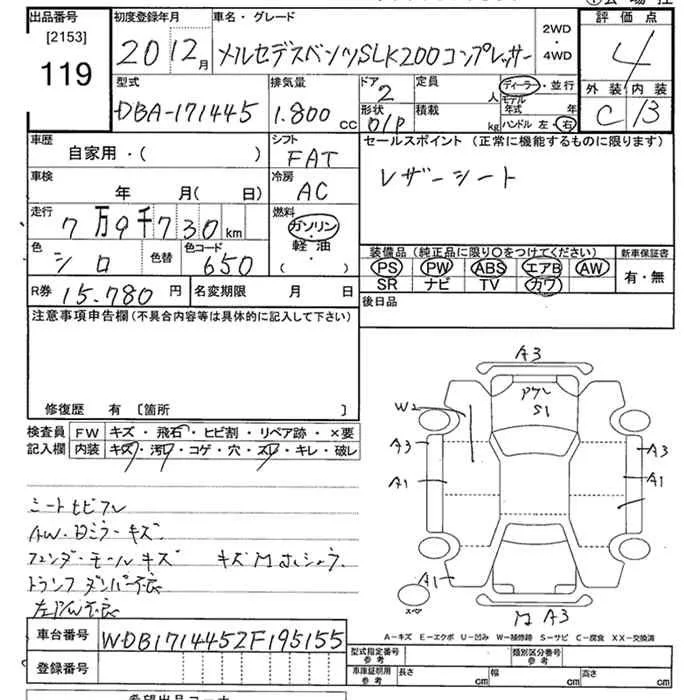 出品番号 [2153] 119
初度登録年月 20 12月
車名・グレード メルセデスベンツSLK200コンプレッサー
2WD・4WD
評価点 4
外装 内装
C B
型式 DBA-171445
排気量 1.800 cc
ドア 2
形状 O/P
定員 人
積載 kg
ディーラー・並行
モデル年式 年
ハンドル 左・右
車歴 自家用・( )
シフト FAT
セールスポイント (正常に機能するものに限ります)
レザーシート
車検 年 月( 日)
冷房 AC
走行 7万9千730km
燃料 ガソリン・軽油・( )
色 シロ 色替 色コード 650
装備品 (純正品に限り○をつけてください)
新車保証書
PS PW ABS エアB AW
SR ナビ TV カワ
有・無
R券 15.780円 名変期限 月 日
後日品
注意事項申告欄 (不具合内容等は具体的に記入して下さい)
修復歴 有 [箇所 ]
検査員記入欄
FW キズ・飛石・ヒビ割・リペア跡・×要
内装 キズ・汚れ・コゲ・穴・スレ・キレ・破レ
A3
W2
S1
A3
A3
A1
A1
A1
A3
スペ
AW・ミラーキズ
フェンダーモールキズ
トランクダンパー不良
左P/W不良
A-キズ E-エクボ U-凹み W-補修跡 S-サビ C-腐食 XX-交換済
車台番号 WDB1714452F195155
登録番号
型式指定番号 参考
類別区分番号 参考
車庫証明用 参考
長さ cm
幅 cm
高さ cm